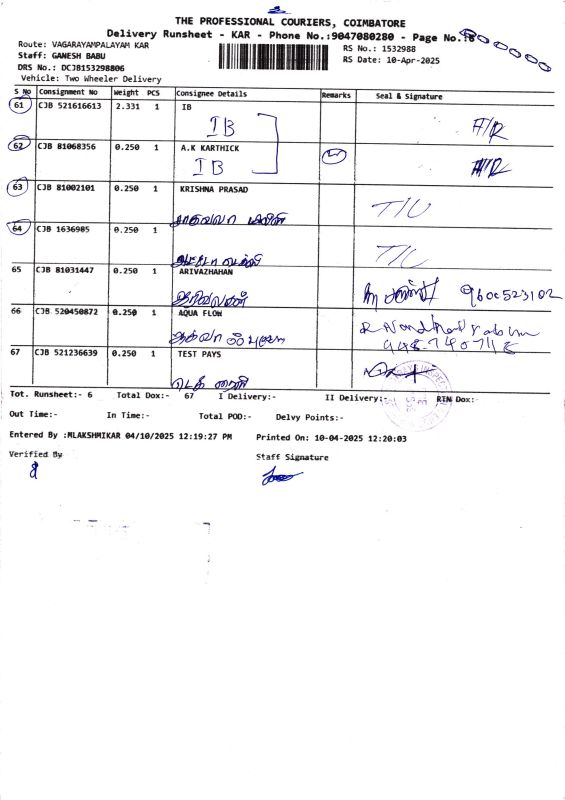 THE PROFESSIONAL COURIERS, COIMBATORE
Delivery Runsheet - KAR - Phone No.:9047080280 - Page No.:6
Route: VAGARAYAMPALAYAM KAR
Staff: GANESH BABU
DRS No.: DCJB153298806
Vehicle: Two Wheeler Delivery
RS No.: 1532988
RS Date: 10-Apr-2025
S No Consignment No Weight PCS Consignee Details Remarks Seal & Signature
61 CJB 521616613 2.331 1 IB
IB A/R
62 CJB 81068356 0.250 1 A.K KARTHICK
IB A/R
63 CJB 81002101 0.250 1 KRISHNA PRASAD
T/U
64 CJB 1636985 0.250 1
T/U
65 CJB 81031447 0.250 1 ARIVAZHAHAN
66 CJB 520450872 0.250 1 AQUA FLOW
67 CJB 521236639 0.250 1 TEST PAYS
Tot. Runsheet:- 6 Total Dox:- 67 I Delivery:- II Delivery:- RTN Dox:-
Out Time:- In Time:- Total POD:- Delvy Points:-
Entered By :MLAKSHMIKAR 04/10/2025 12:19:27 PM Printed On: 10-04-2025 12:20:03
Verified By Staff Signature